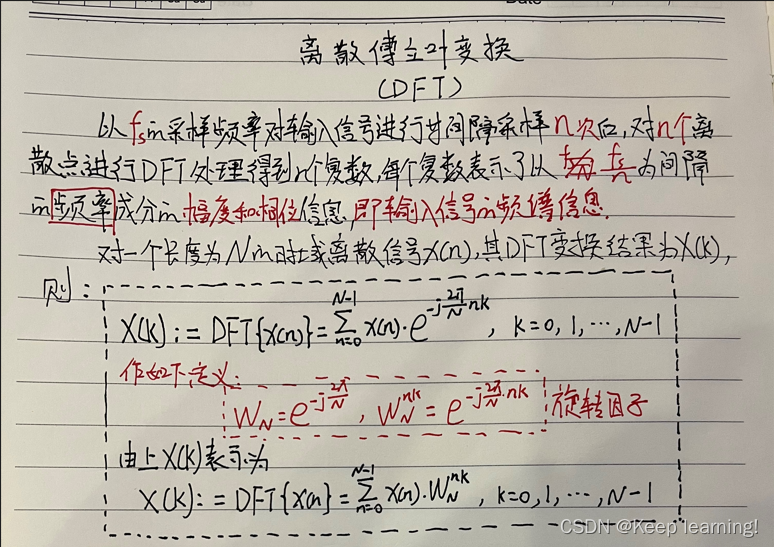 离散傅立叶变换
(DFT)
以fs的采样频率对输入信号进行等间隔采样n次后,对n个离
散点进行DFT处理得到n个复数,每个复数表示了以 fs/n 为间隔
的频率成分的幅度和相位信息,即输入信号的频谱信息.
对一个长度为N的时域离散信号x(n),其DFT变换结果为X(k),
则:
X(k):=DFT{x(n)}=∑_{n=0}^{N-1} x(n)·e^{-j\frac{2π}{N}nk}, k=0,1,…,N-1
作如下定义:
W_N=e^{-j\frac{2π}{N}}, W_N^{nk}=e^{-j\frac{2π}{N}·nk} 旋转因子
由上X(k)表示为
X(k):=DFT{x(n)}=∑_{n=0}^{N-1} x(n)·W_N^{nk}, k=0,1,…,N-1
CSDN @Keep learning!